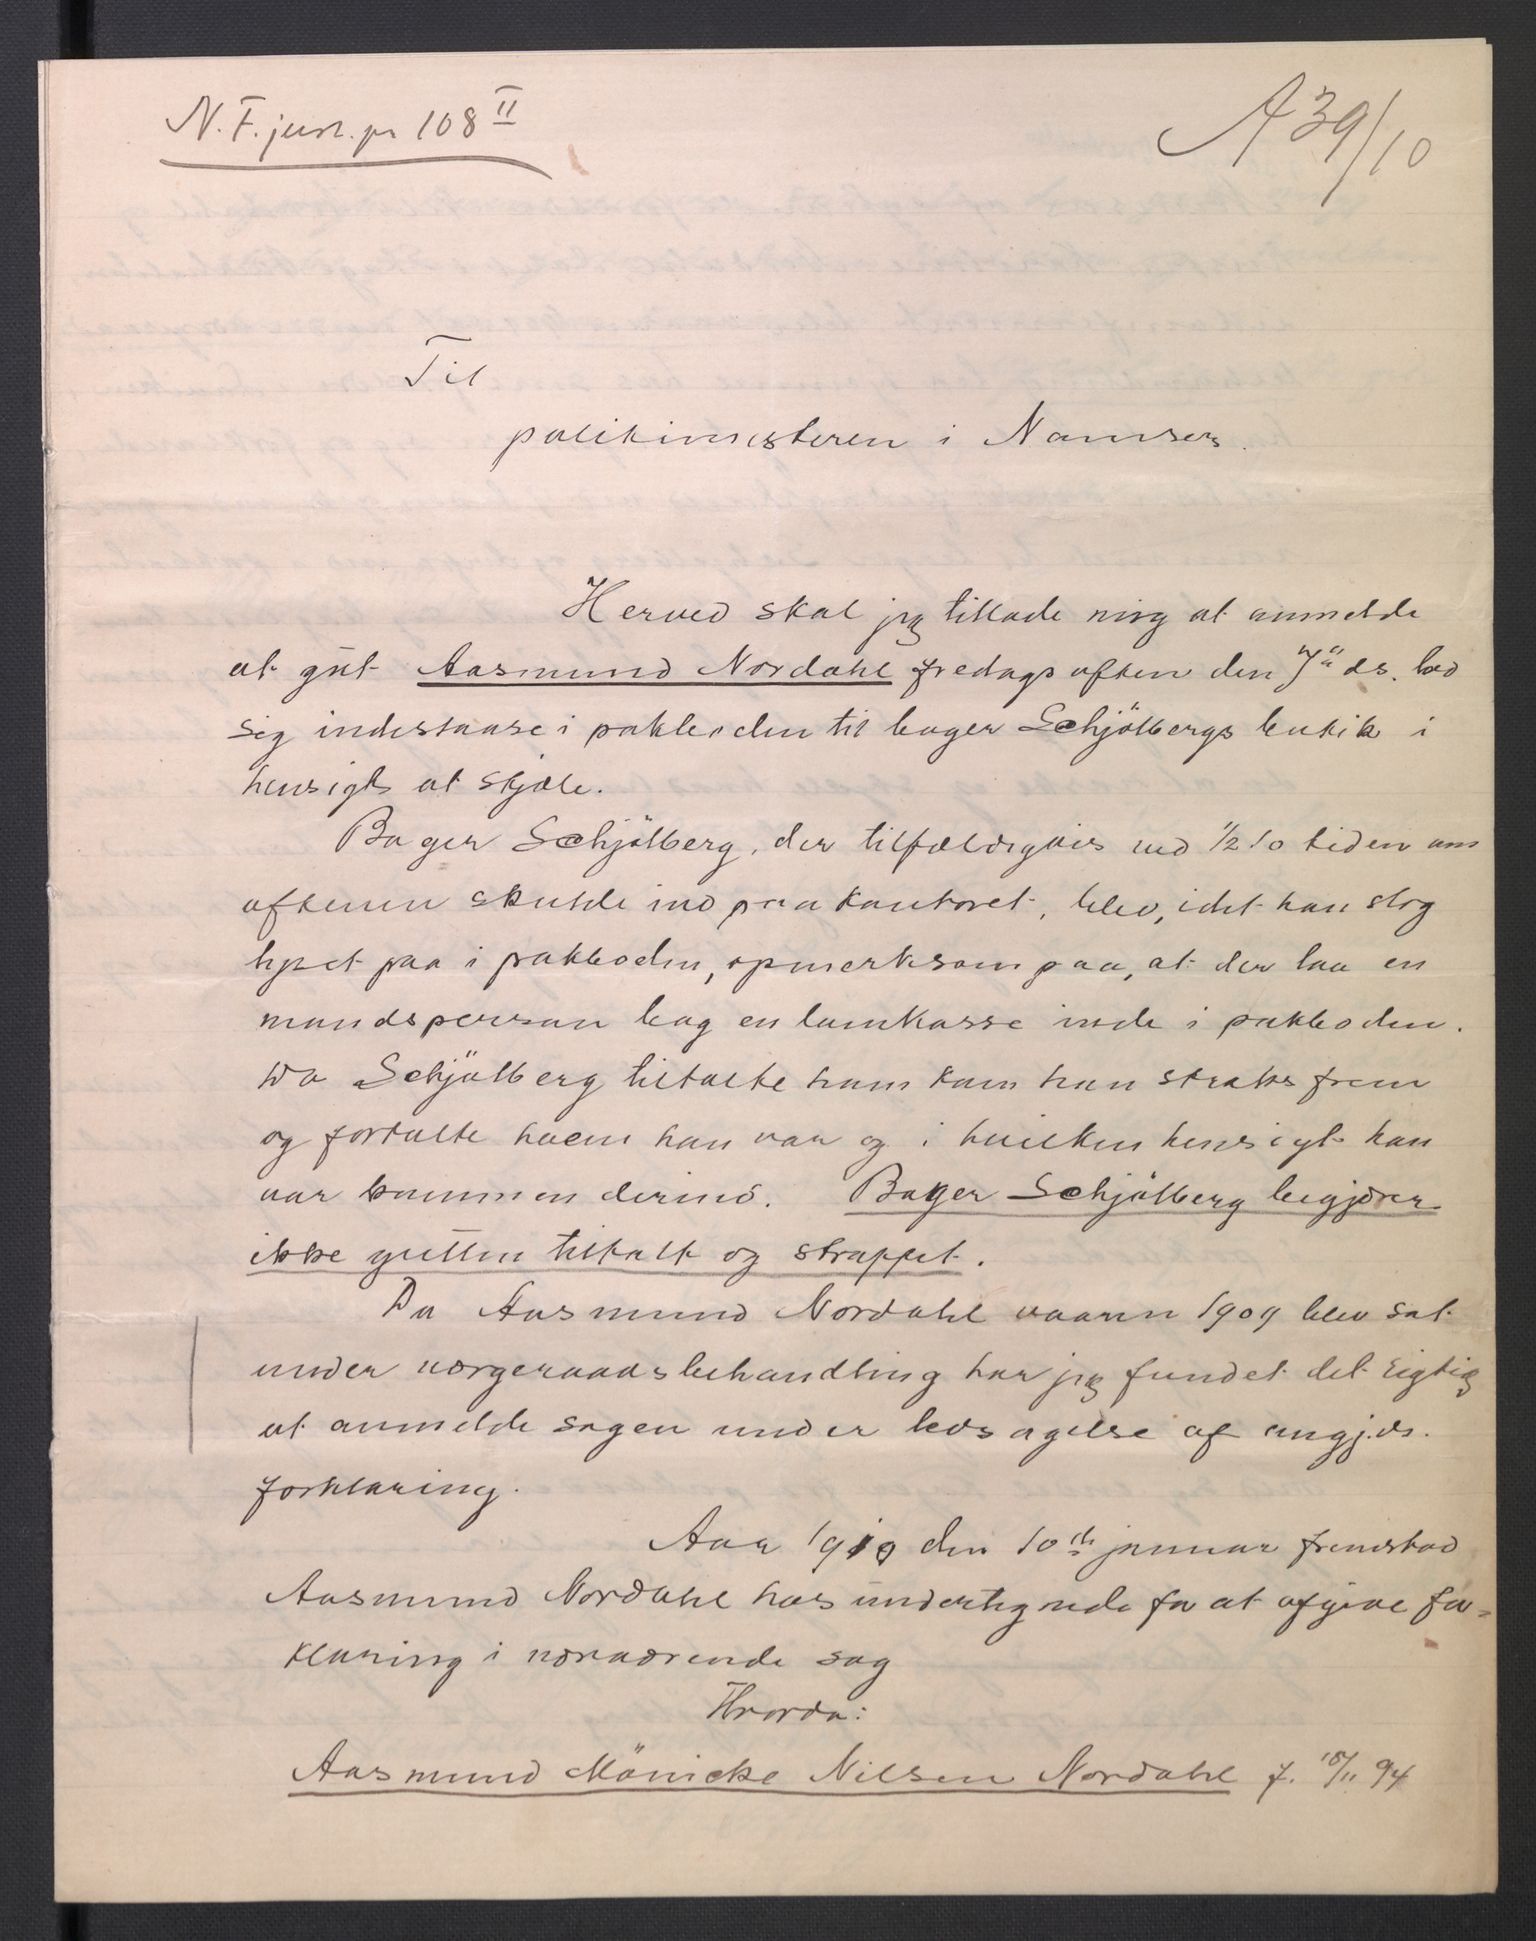 N. F. jusn. pr 108 II
A 39/10
Til
politimesteren i Namsos.
Herved skal jeg tillade mig at anmelde
at gut Aasmund Nordahl fredags aften den 7de ds. lod
sig indestænge i pakboden til bager Schjölbergs butik i
hensigt at stjæle.
Bager Schjölberg, der tilfældigvis ved 1/2 10 tiden om
aftenen skulde ind paa kontoret, blev, idet han slog
lyset paa i pakboden, opmerksom paa, at der laa en
mandsperson bag en tomkasse inde i pakboden.
Da Schjölberg tiltalte ham kom han straks frem
og fortalte hvem han var og i hvilken hensigt han
var kommen derind. Bager Schjölberg begjærer
ikke gutten tiltalt og straffet.
Da Aasmund Nordahl vaaren 1909 blev sat
under værgeraadsbehandling har jeg fundet det rigtig
at anmelde sagen under ledsagelse af angj.ds.
forklaring.
Aar 1910 den 10de januar fremstod
Aasmund Nordahl hos undertegnede for at afgive for=
klaring i nærværende sag
Hvorda:
Aasmund Mönicke Nilsen Nordahl f. /11 94